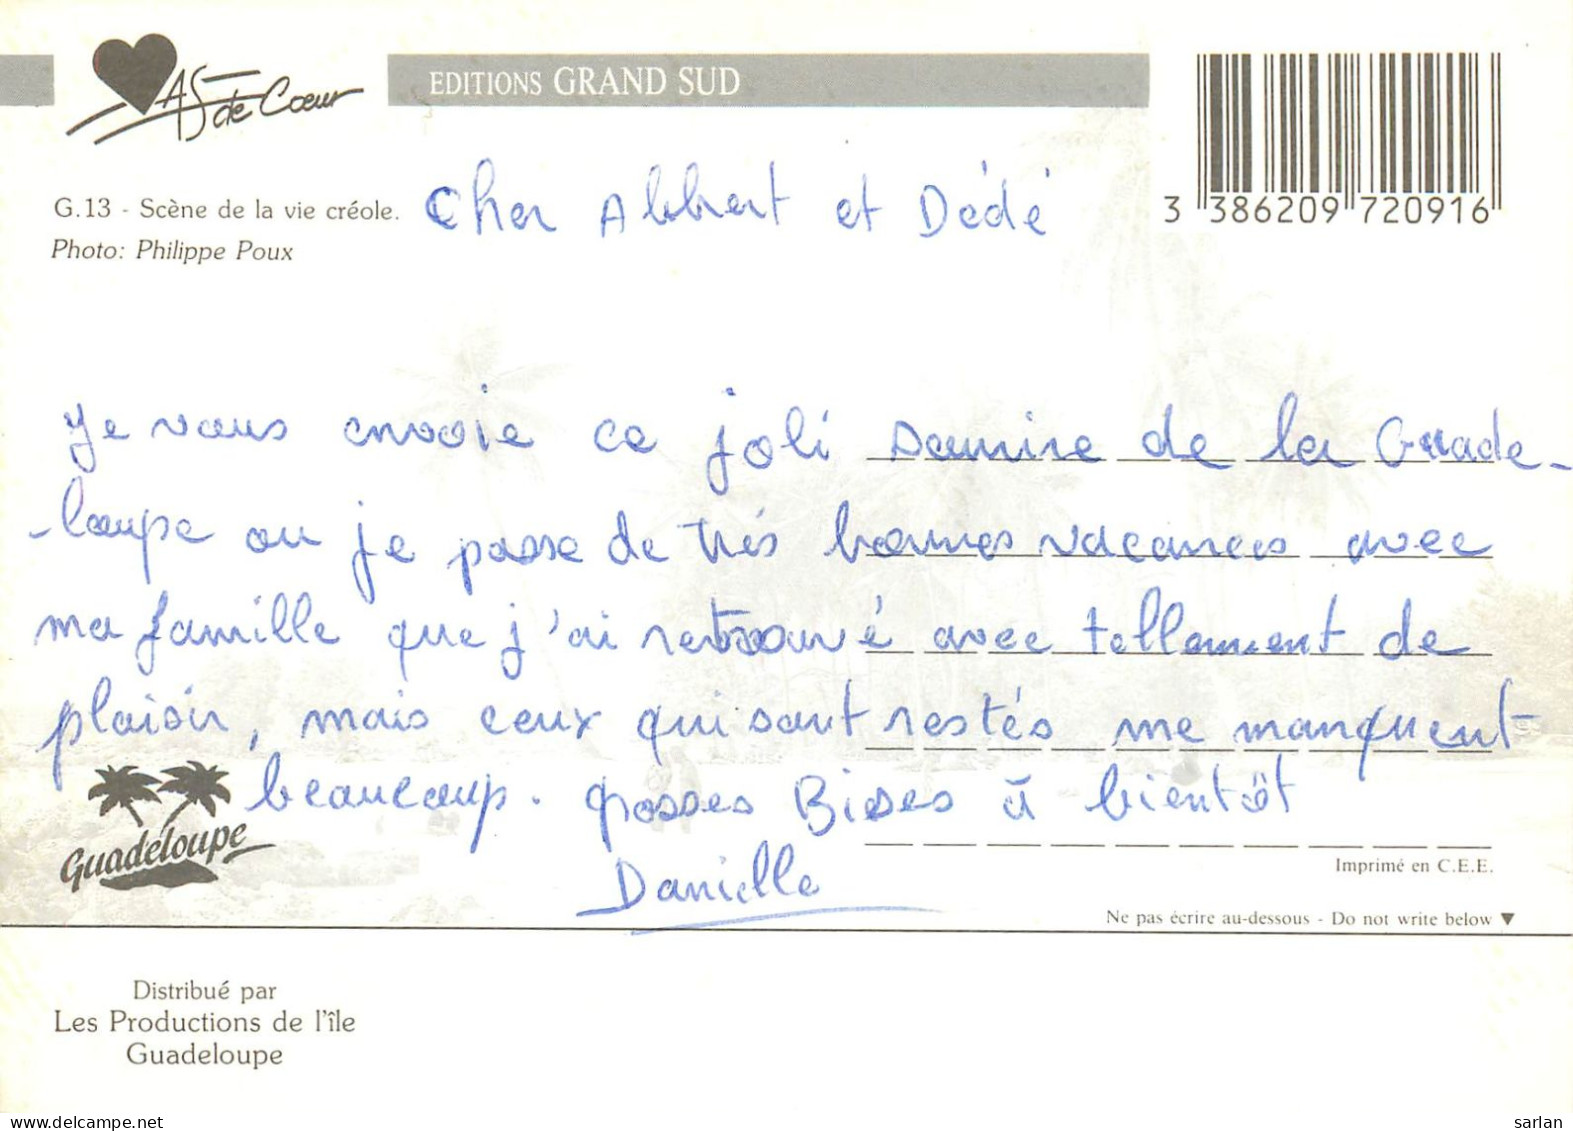 As de Cœur
EDITIONS GRAND SUD
G.13 - Scène de la vie créole.
Photo: Philippe Poux
3 386209 720916
Cher Albert et Dédé
Je vous envoie ce joli sourire de la Guade-
-loupe ou je passe de très bonnes vacances avec
ma famille que j'ai retrouvé avec tellement de
plaisir, mais ceux qui sont restés me manquent
beaucoup. grosses Bises à bientôt
Danielle
Guadeloupe
Imprimé en C.E.E.
Ne pas écrire au-dessous - Do not write below ▼
Distribué par
Les Productions de l'île
Guadeloupe
sarlan